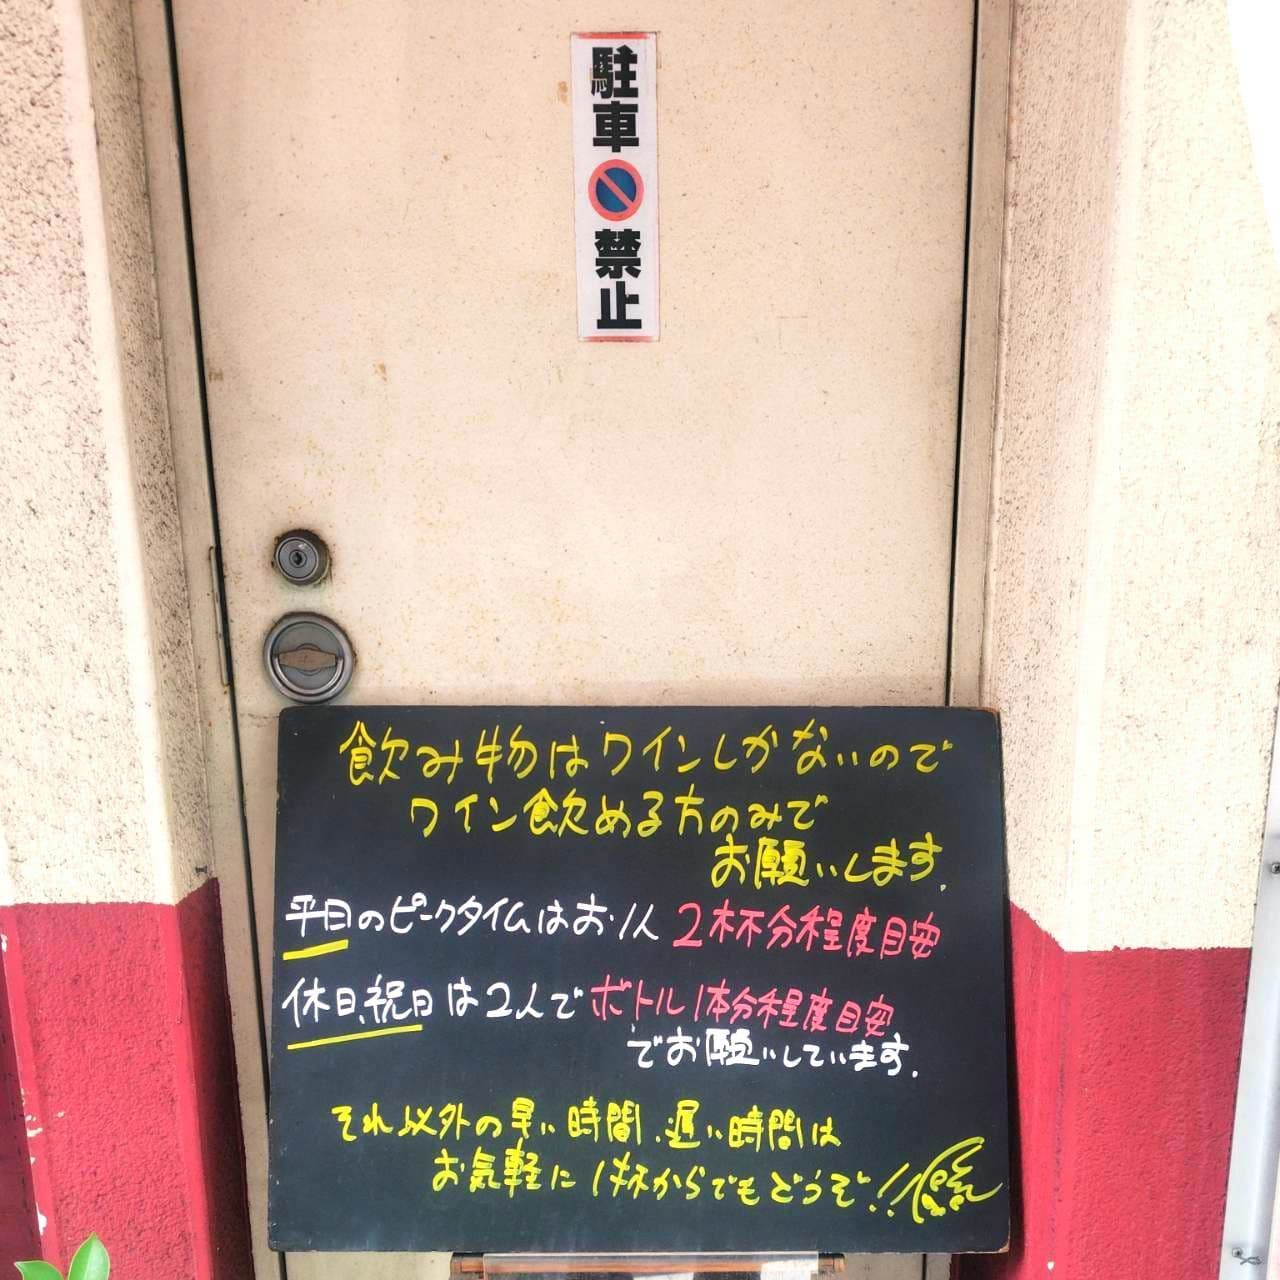 駐車禁止
飲み物はワインしかないので
ワイン飲める方のみで
お願いします.
平日のピークタイムはお1人 2杯分程度目安
休日、祝日は2人でボトル1本分程度目安
でお願いしています.
それ以外の早い時間、遅い時間は
お気軽に1杯からでもどうぞ!!